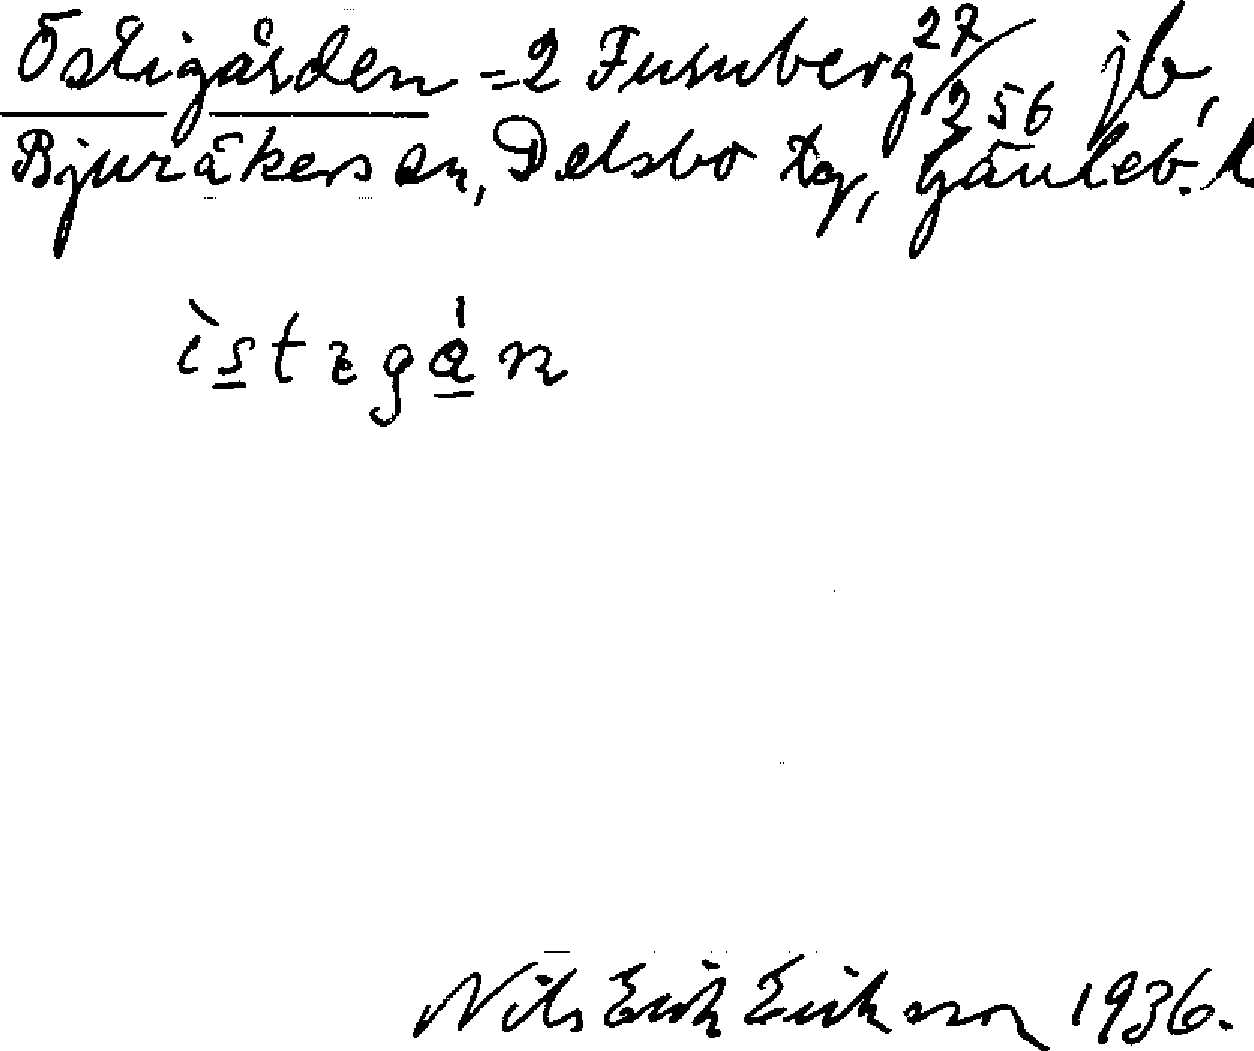 Östigården = 2 Furuberg 27/256 jb,
Bjuråkers sn, Delsbo tg, Gävleb. l
Nils Erik Eriksson 1936.